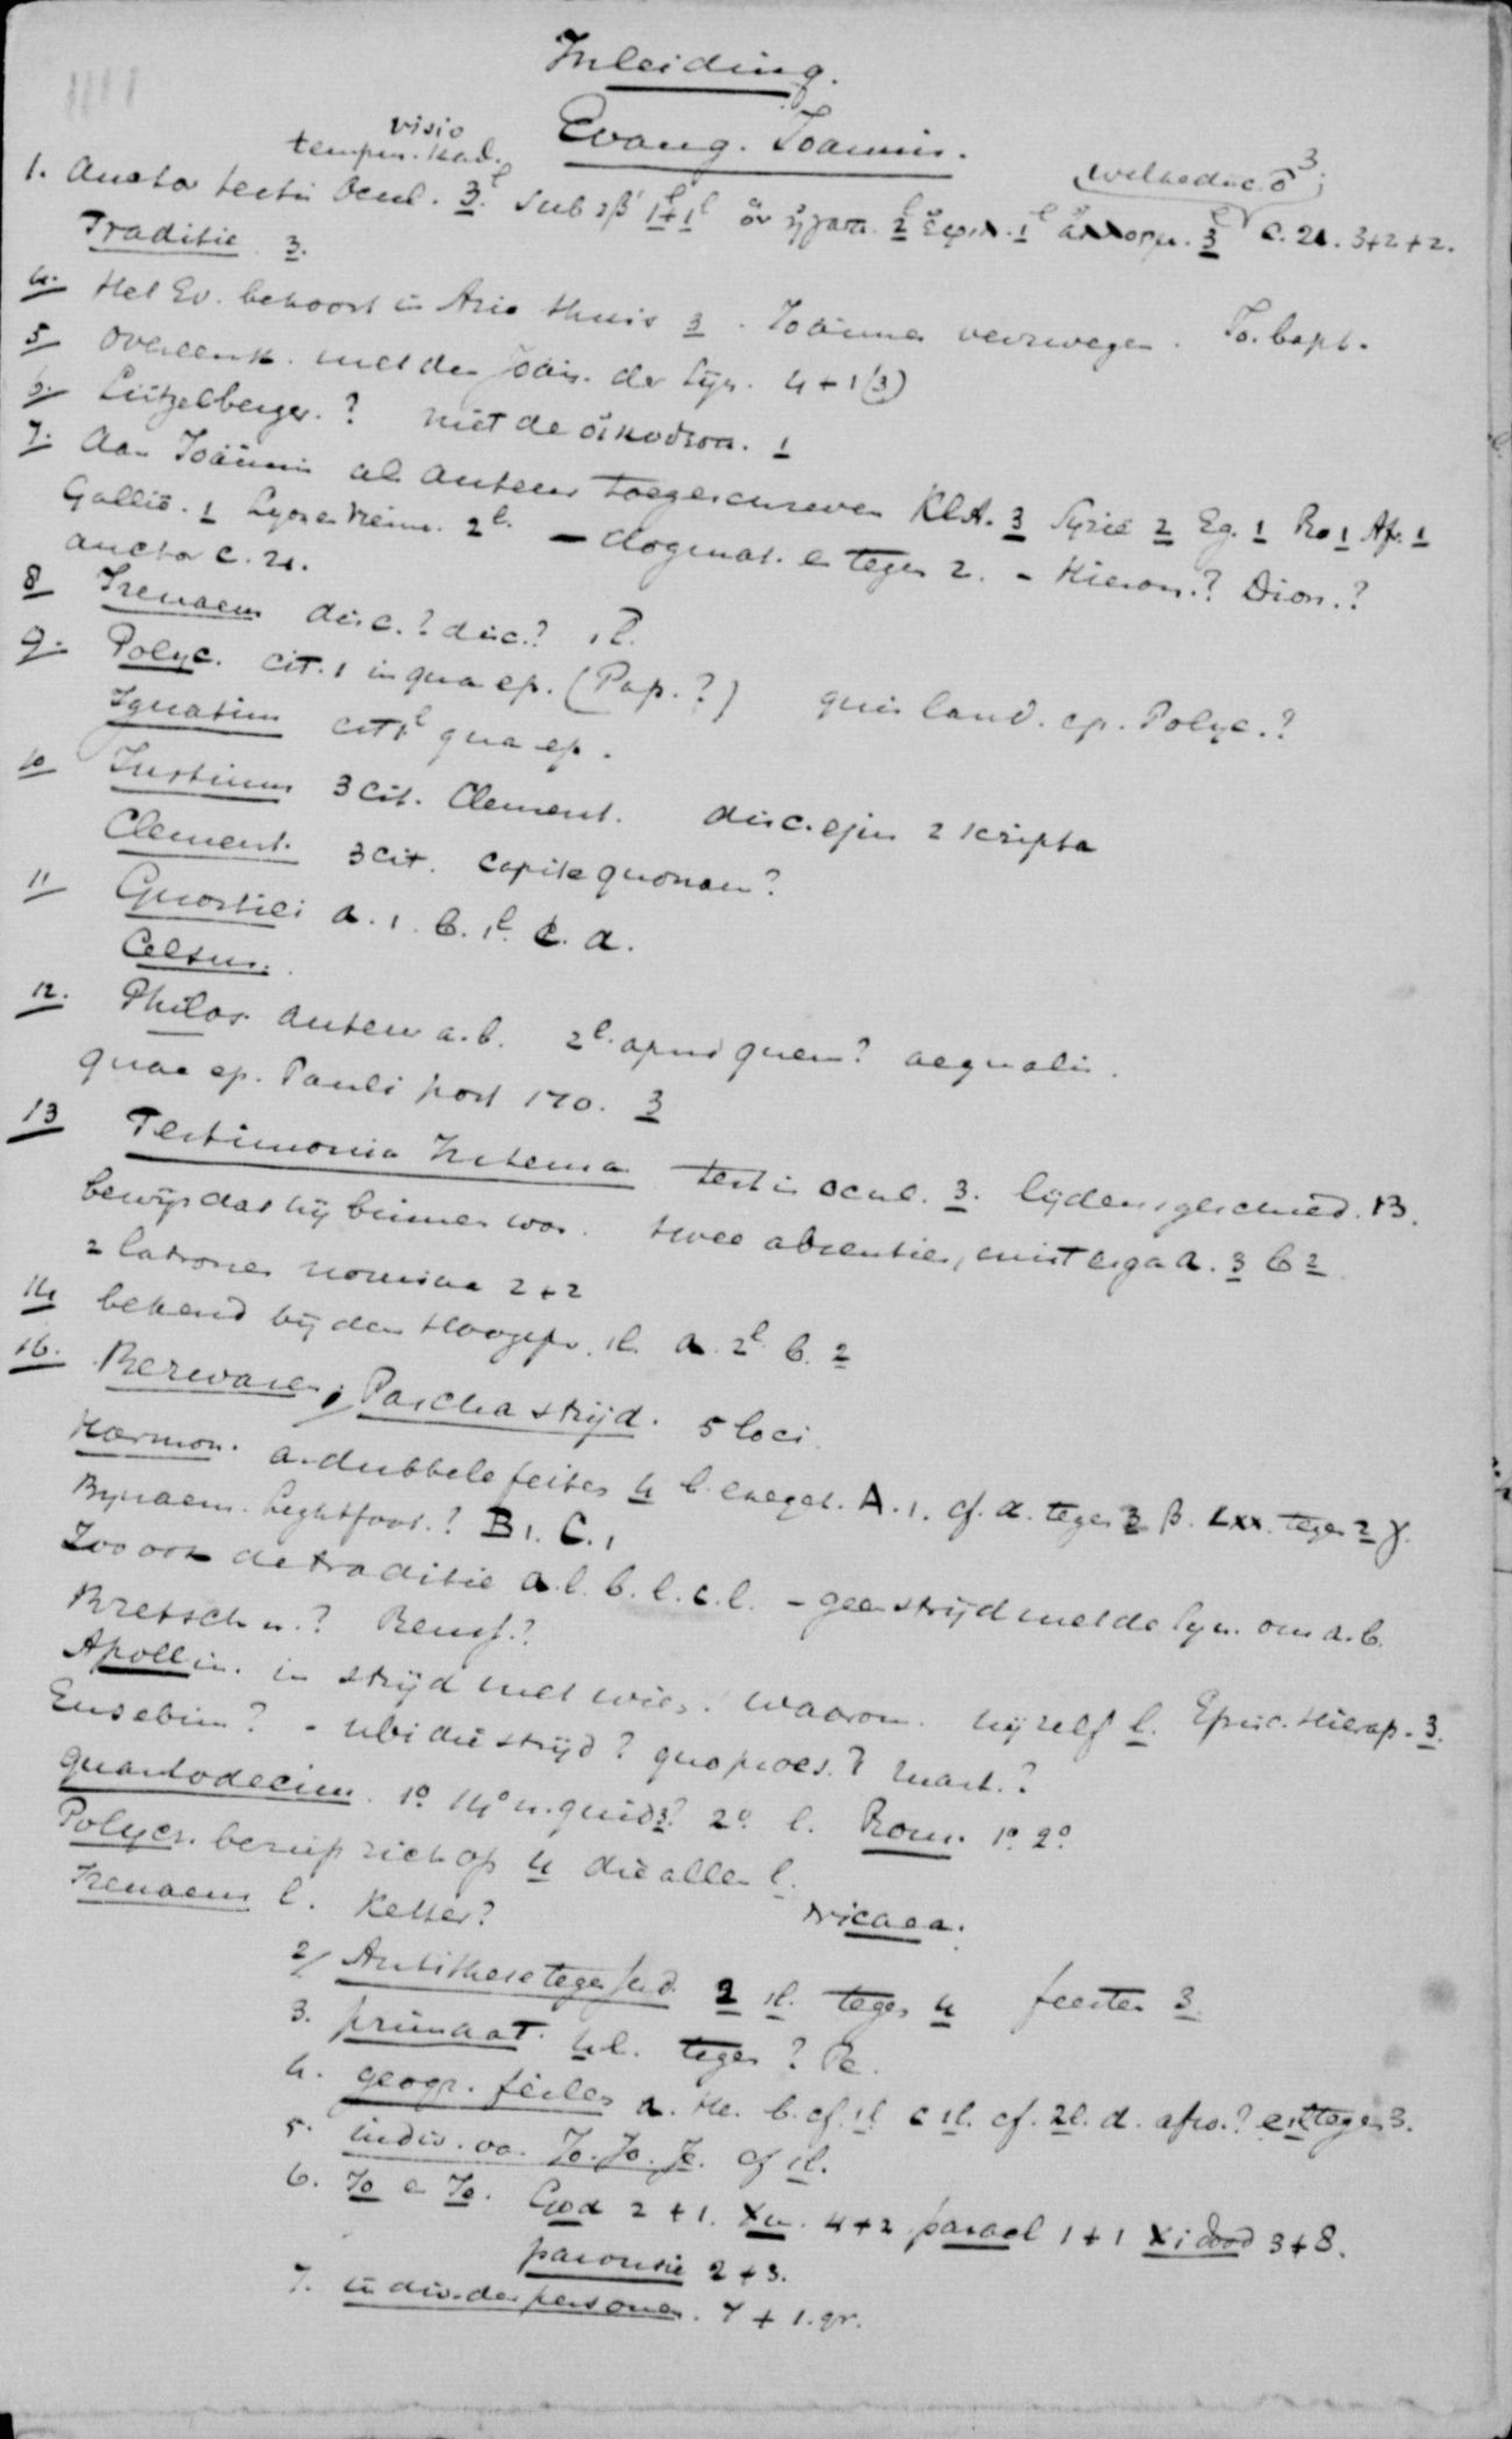 Inleiding.
Evang. Joannis.
visio
tempus. trad.
welke disc. ὁ 3;
1. Auctor testis Ocul. 3.l Sub. 1+1l ὃν ἠγάπα. 2l 1l 3l C. 21. 3+2+2.
Traditie 3.
4. Het Ev. behoort in Asia thuis 3. Joannes Jo. bapt.
5 overeenk. met den Joan. der Syn. 4+1(3)
6. Lützelberger. ? niet de 1
7. Aan Joannis als Auteur toegeschreven Kl.A. 3 Syrië 2 Eg. 1 Ro 1 Af. 1
Gallië. 1 Lyon en Vienne. 2l. – dogmat. en tegen 2. – Hieron.? Dion.?
auctor c. 21.
8 Irenaeus disc.? disc.? 1l.
9. Polyc. cit. 1 in qua ep. (Pap.?) quis laud. ep. Polyc.?
Ignatius cit 1l qua ep.
10 Justinus 3 cit. Clement. disc. ejus 2 scripta
Clement. 3 cit. capite quonam?
11 Gnostici a. 1. b. 1l. c. d.
Celsus.
12. Philos. auteur a. b. 2l. apud quem? aequalis.
quae ep. Pauli post 170. 3
13 Testimonia Interna testis ocul. 3. lijdensgeschied. 13.
bewijs dat hij binnen was. twee absenties, mist erga a. 3 b 2
2 latrones nomina 2+2
14 bekend bij den Hoogepr. 1l. a. 2l. b. 2
16. Bezwaren; Paschastrijd. 5 loci.
Harmon. a. dubbele feiten 4 b. exeget. A. 1. cf. α. tegen 3 β. LXX. tegen 2 γ.
Bynaeus. Lightfoot.? B 1. C. 1
Zoo ook de traditie a. l. b. l. c. l. – geen strijd met de Syn. om a. b.
Bretschn.? Reuss.?
Apollin. in strijd met wien. waarom. hijzelf l. Episc. Hierap. 3.
Eusebius? – ubi die strijd? quo praes.? mart.?
quartodecim. 1º 14º n. quid 3? 2º l. Rom. 1º 2º
Polycr. beriep zich op 4 die allen l.
Irenaeus l. Ketter? Nicaea.
2/ Antithese tegen Jud. 2 1l. tegen 4 feesten 3.
3. primaat. 4 l. tegen? Pe.
4. geogr. feiten a. He. b. cf. 1l c 1l. cf. 2l. d. afw.? e 1l tegen 3.
5. indiv. va. Jo. Jo. Je. cf 1l.
6. Jo en Jo. God 2+1. Xu. 4+2 paracl 1+1 Xi dood 3+8.
parousie 2+3.
7. indiv. der personen. 7+1. gr.